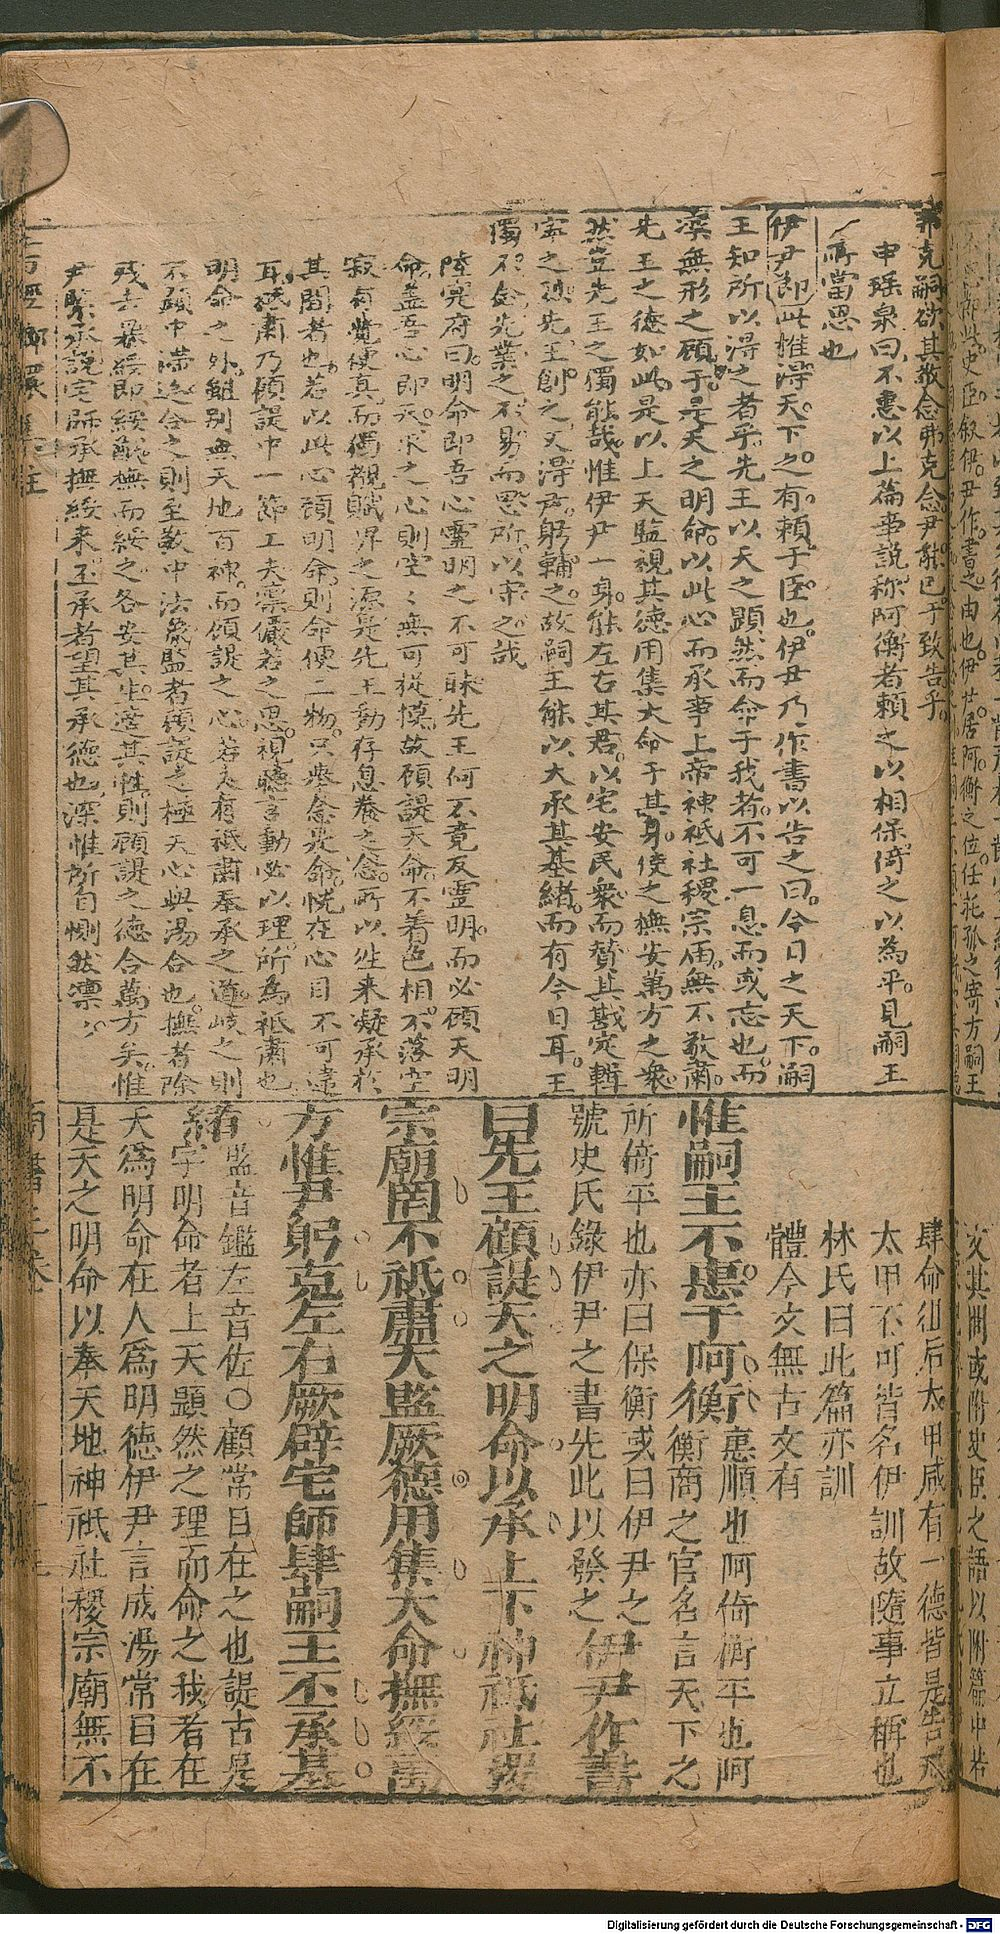 弗克嗣欲其敬念弗克念尹能已于致告乎
申瑤泉曰不惠以上篇事説称阿衡者賴之以相保倚之以為平見嗣王
所當思也
伊尹即此惟得天下之有賴于臣也伊尹乃作書以告之曰今日之天下嗣
王知所以得之者乎先王以天之顯然而命于我者不可一息而或忘也而
深無形之顧于是天之明命以此心而承事上帝神祇社稷宗庙無不敬肅
先王之徳如此是以上天監視其德用集大命于其身使之撫安萬方之衆
然豈先王之獨能哉惟伊尹一身能左右其君以宅安民衆而賛其戡定輯
寧之功先王創之又得尹躬輔之故嗣王能以大承其基緒而有今日耳王
獨不念先業之不易而思所以守之哉
陸宛府曰明命即吾心靈明之不可昧先王何不竟反靈明而必顧天明
命盖吾心即天求之心則空〻無可從摸故顧諟天命不着色相不落空
寂有覚便真而獨觀賦畀之源是先王動存息養之念所以生来凝承於
其間者也若以此心顧明命則命便二物只举念是命恍在心目不可違
耳祗肅乃顧諟中一節工夫凛儼若之思視聽言動必以理所為祗肅也
明命之外雖别無天地百神而顧諟之心若夫有祗肅奉承之道岐之則
不顯中滞迄合之則至敬中法象監者顧諟之極天心與湯合也撫者除
残去暴綏即綏猷撫而綏之各安其生适其性則顧諟之德合萬方矣惟
尹緊承説宅師承撫綏来丕承者望其承德也深惟所自惻然凛〻
肆命徂后太甲咸有一德皆是告戒
太甲不可皆名伊訓故隨事立稱也
林氏曰此篇亦訓
體今文無古文有
惟嗣王不惠于阿衡惠順也阿倚衡平也阿
衡商之官名言天下之
所倚平也亦曰保衡或曰伊尹之
號史氏錄伊尹之書先此以發之伊尹作書
曰先王顧諟天之明命以承上下神祇社稷
宗廟罔不祗肅天監厥德用集大命撫綏萬
方惟尹躬克左右厥辟宅師肆嗣王丕承基
緒監音鑑左音佐○顧常目在之也諟古是
字明命者上天顯然之理而命之我者在
天爲明命在人爲明德伊尹言成湯常目在
是天之明命以奉天地神祇社稷宗廟無不
Digitalisierung gefördert durch die Deutsche Forschungsgemeinschaft - DFG